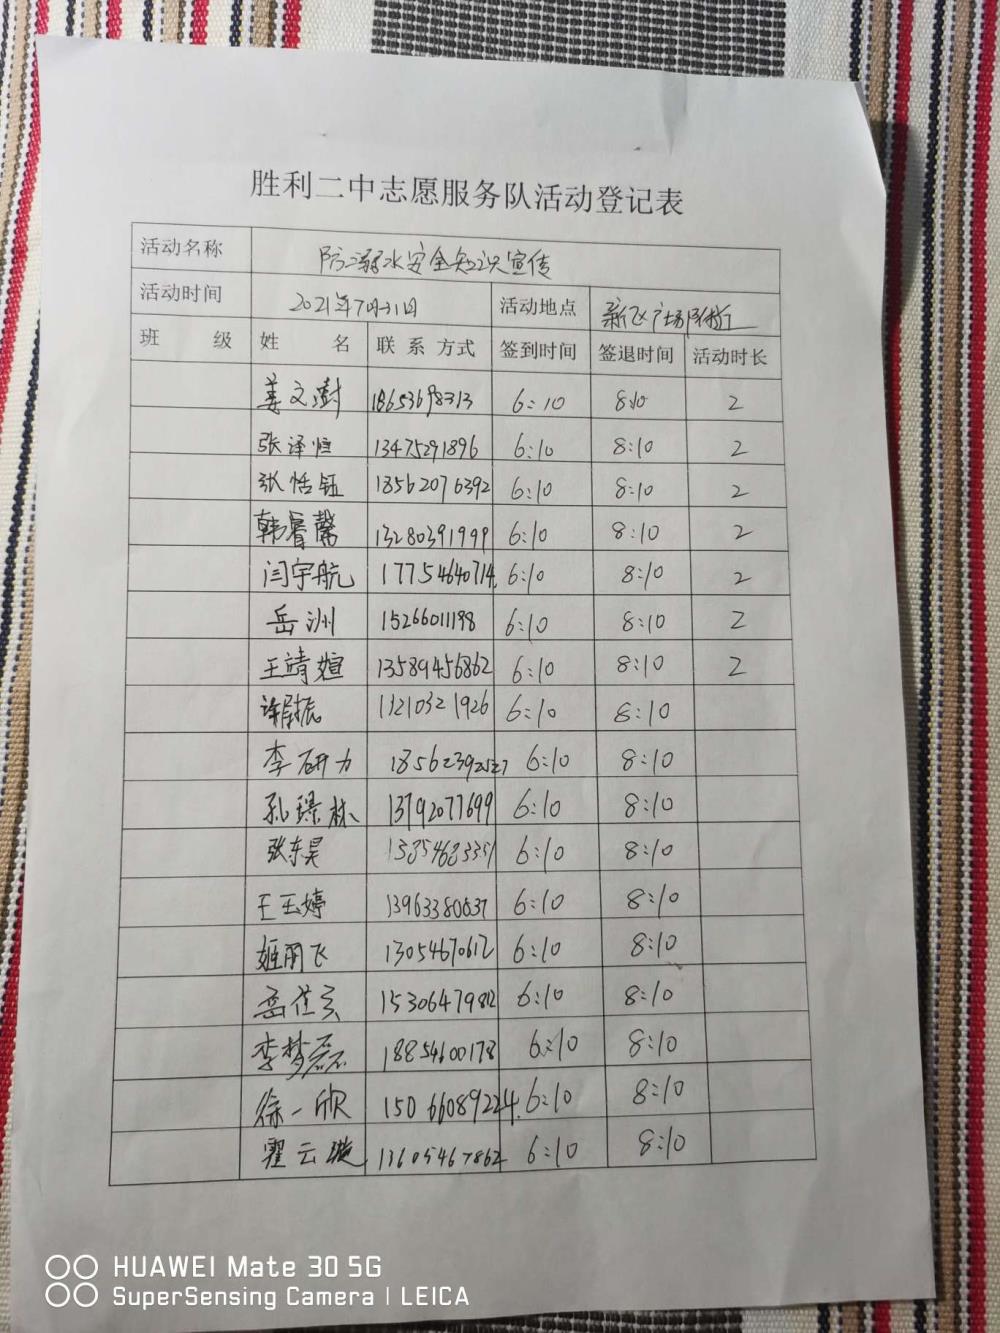 胜利二中志愿服务队活动登记表
活动名称 防溺水安全知识宣传
活动时间 2021年7月31日 活动地点 新飞广场附近
班 级 姓 名 联系方式 签到时间 签退时间 活动时长
姜文澍 18653698313 6:10 8:10 2
张泽恒 13475291896 6:10 8:10 2
张恬钰 18562076392 6:10 8:10 2
韩睿馨 13280391999 6:10 8:10 2
闫宇航 17754640714 6:10 8:10 2
岳洲 15266011198 6:10 8:10 2
王靖媗 13589456862 6:10 8:10 2
6:10 8:10
李研力 18562392527 6:10 8:10
孙璟林 13792077699 6:10 8:10
张东昊 6:10 8:10
王玉婷 13963380637 6:10 8:10
姬朋飞 13054670612 6:10 8:10
高佳 15306479812 6:10 8:10
李梦磊 18854600178 6:10 8:10
徐一欣 15066089224 6:10 8:10
霍云璇 13605467862 6:10 8:10
HUAWEI Mate 30 5G
SuperSensing Camera | LEICA